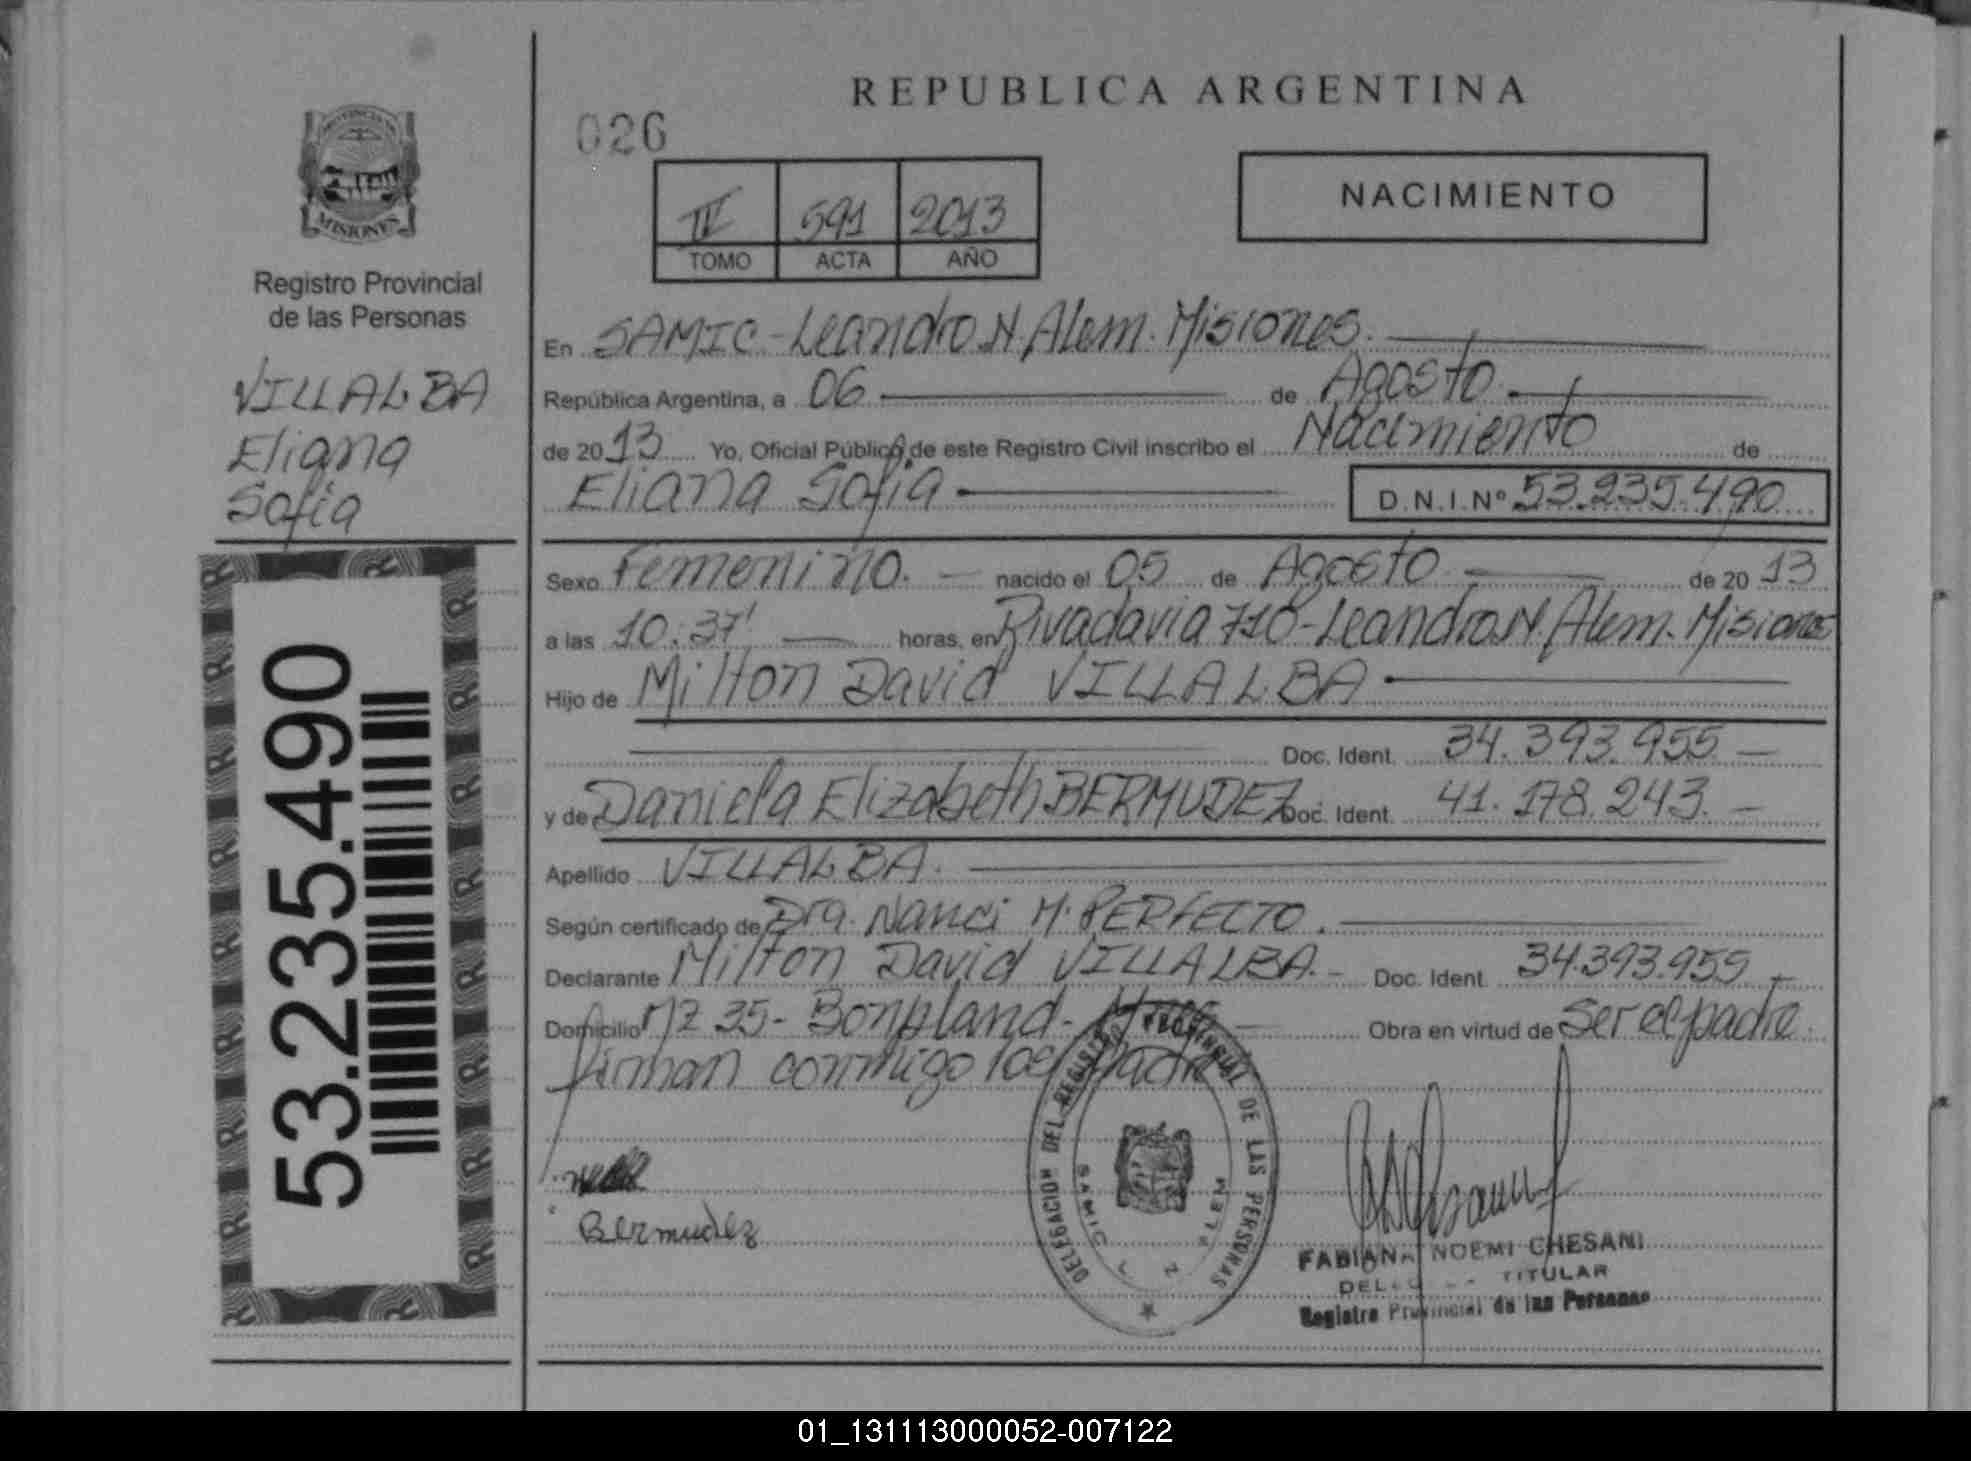 REPUBLICA ARGENTINA
026
PROVINCIA DE
MISIONES
Registro Provincial
de las Personas
VILLALBA
Eliana
Sofia
53.235.490
NACIMIENTO
591 2013
TOMO ACTA AÑO
En SAMIC - Leandro N. Alem. Misiones.
República Argentina, a 06 de Agosto
de 2013 Yo, Oficial Público de este Registro Civil inscribo el Nacimiento de
Eliana Sofia D.N.I.Nº 53.235.490
Sexo Femenino. nacido el 05 de Agosto de 2013
a las 10:37' horas, en Rivadavia 710 - Leandro N. Alem. Misiones
Hijo de Milton David VILLALBA
Doc. Ident. 34.393.955
y de Daniela Elizabeth BERMUDEZ Doc. Ident. 41.178.243.
Apellido VILLALBA.
Según certificado de Dra. Nanci M. PERFECTO.
Declarante Milton David VILLALBA.- Doc. Ident. 34.393.955
Domicilio MZ 35 - Bonpland - Obra en virtud de Ser el padre.
firman conmigo los
DELEGACION DEL REGISTRO PROVINCIAL DE LAS PERSONAS
SAMIC L N ALEM
Bermudez
FABIANA NOEMI CHESANI
TITULAR
Registro Provincial de las Personas
01_131113000052-007122